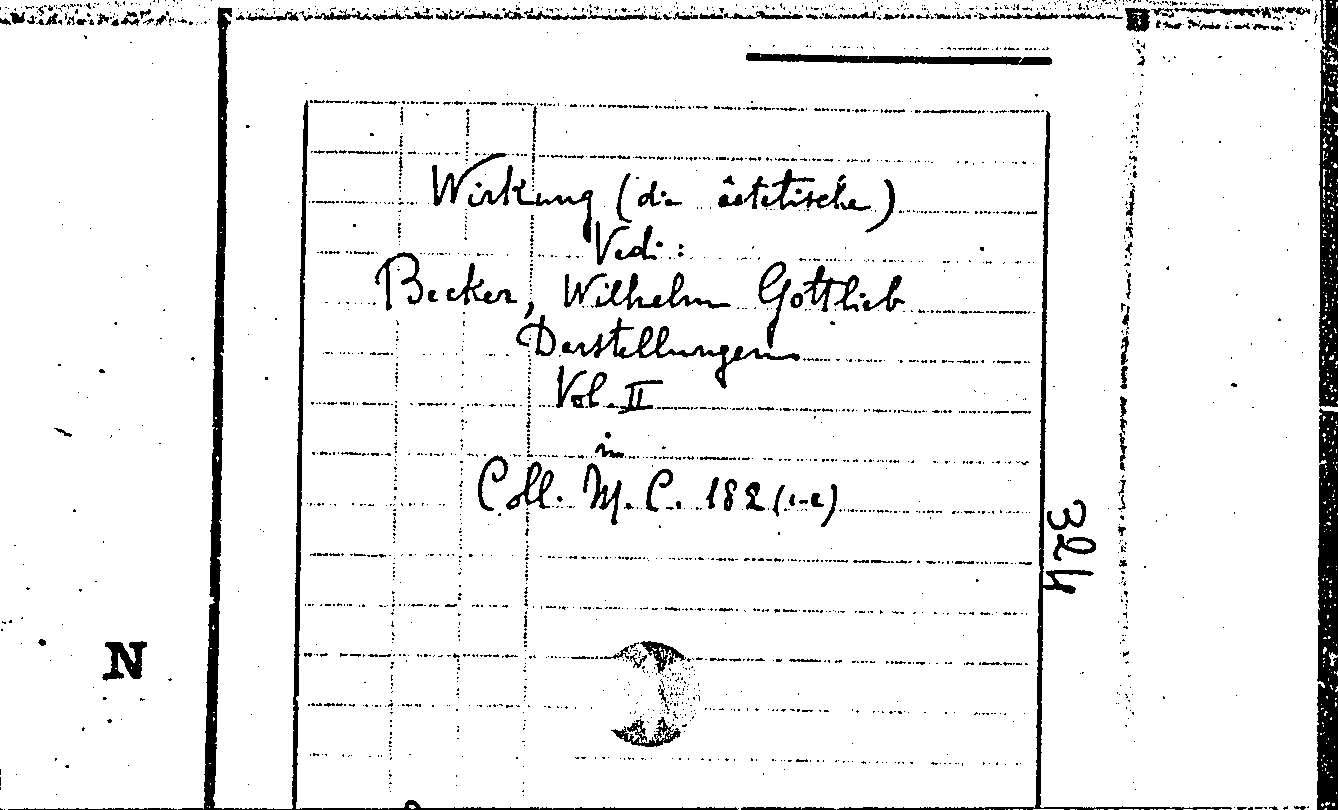 Wirkung (die ästetische)
Vedi:
Becker, Wilhelm Gottlieb
Darstellungen
Vol. II
in
Coll. M. C. 182 (1-2)
324
N